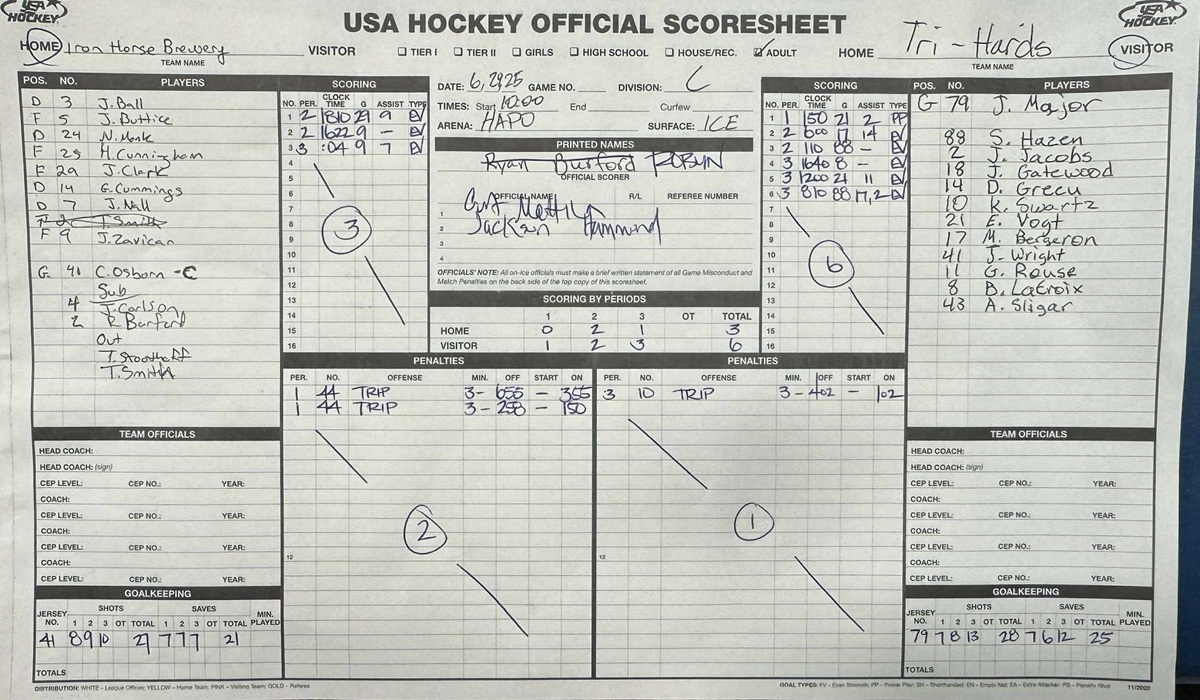 USA HOCKEY
USA HOCKEY OFFICIAL SCORESHEET
USA HOCKEY
HOME Iron Horse Brewery VISITOR
TEAM NAME
TIER I TIER II GIRLS HIGH SCHOOL HOUSE/REC. ADULT
HOME Tri-Hards VISITOR
TEAM NAME
POS. NO. PLAYERS
D 3 J. Ball
F 5 J. Buttice
D 24 N. Monk
F 25 M. Cunningham
F 29 J. Clerk
D 14 G. Cummings
D 7 J. Nall
T. Smith
F 9 J. Zavican
G 41 C. Osborn -C
Sub
4 T. Carlson
2 R. Burford
Out
T. Stoothoff
T. Smith
SCORING
NO. PER. CLOCK TIME G ASSIST TYPE
1 2 1810 29 9 EV
2 2 1622 9 - EV
3 3 :04 9 7 EV
4
5
6
7
8
9
10
11
12
13
14
15
16
3
DATE: 6,29,25 GAME NO. DIVISION: C
TIMES: Start 10:00 End Curfew
ARENA: HAPO SURFACE: ICE
PRINTED NAMES
Ryan Burford ROBYN
OFFICIAL SCORER
OFFICIAL NAME R/L REFEREE NUMBER
1 Curt Mattila
2 Jackson Hammond
3
4
OFFICIALS' NOTE: All on-ice officials must make a brief written statement of all Game Misconduct and
Match Penalties on the back side of the top copy of this scoresheet.
SCORING BY PERIODS
1 2 3 OT TOTAL
HOME 0 2 1 3
VISITOR 1 2 3 6
SCORING
NO. PER. CLOCK TIME G ASSIST TYPE
1 1 150 21 2 PP
2 2 600 17 14 EV
3 2 110 88 - EV
4 3 1640 8 - EV
5 3 1200 21 11 EV
6 3 810 88 17,2 EV
7
8
9
10
11
12
13
14
15
16
6
POS. NO. PLAYERS
G 79 J. Major
88 S. Hazen
2 J. Jacobs
18 J. Gatewood
14 D. Grecu
10 K. Swartz
21 E. Vogt
17 M. Bergeron
41 J. Wright
11 G. Rouse
8 B. LaCroix
43 A. Sligar
PENALTIES
PER. NO. OFFENSE MIN. OFF START ON
1 44 TRIP 3- 655 - 355
1 44 TRIP 3- 258 - 150
12
2
PENALTIES
PER. NO. OFFENSE MIN. OFF START ON
3 10 TRIP 3- 402 - 102
12
1
TEAM OFFICIALS
HEAD COACH:
HEAD COACH: (sign)
CEP LEVEL: CEP NO.: YEAR:
COACH:
CEP LEVEL: CEP NO.: YEAR:
COACH:
CEP LEVEL: CEP NO.: YEAR:
COACH:
CEP LEVEL: CEP NO.: YEAR:
GOALKEEPING
JERSEY NO. SHOTS SAVES MIN. PLAYED
1 2 3 OT TOTAL 1 2 3 OT TOTAL
41 8 9 10 27 7 7 7 21
TOTALS
TEAM OFFICIALS
HEAD COACH:
HEAD COACH: (sign)
CEP LEVEL: CEP NO.: YEAR:
COACH:
CEP LEVEL: CEP NO.: YEAR:
COACH:
CEP LEVEL: CEP NO.: YEAR:
COACH:
CEP LEVEL: CEP NO.: YEAR:
GOALKEEPING
JERSEY NO. SHOTS SAVES MIN. PLAYED
1 2 3 OT TOTAL 1 2 3 OT TOTAL
79 7 8 13 28 7 6 12 25
TOTALS
DISTRIBUTION: WHITE - League Offices; YELLOW - Home Team; PINK - Visiting Team; GOLD - Referee
GOAL TYPES: EV - Even Strength; PP - Power Play; SH - Shorthanded; EN - Empty Net; EA - Extra Attacker; PS - Penalty Shot
11/2022